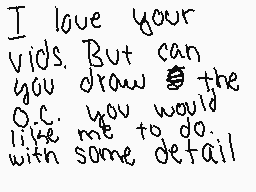 I love your
vids. But can
you draw the
O.C. you would
like me to do.
with some detail